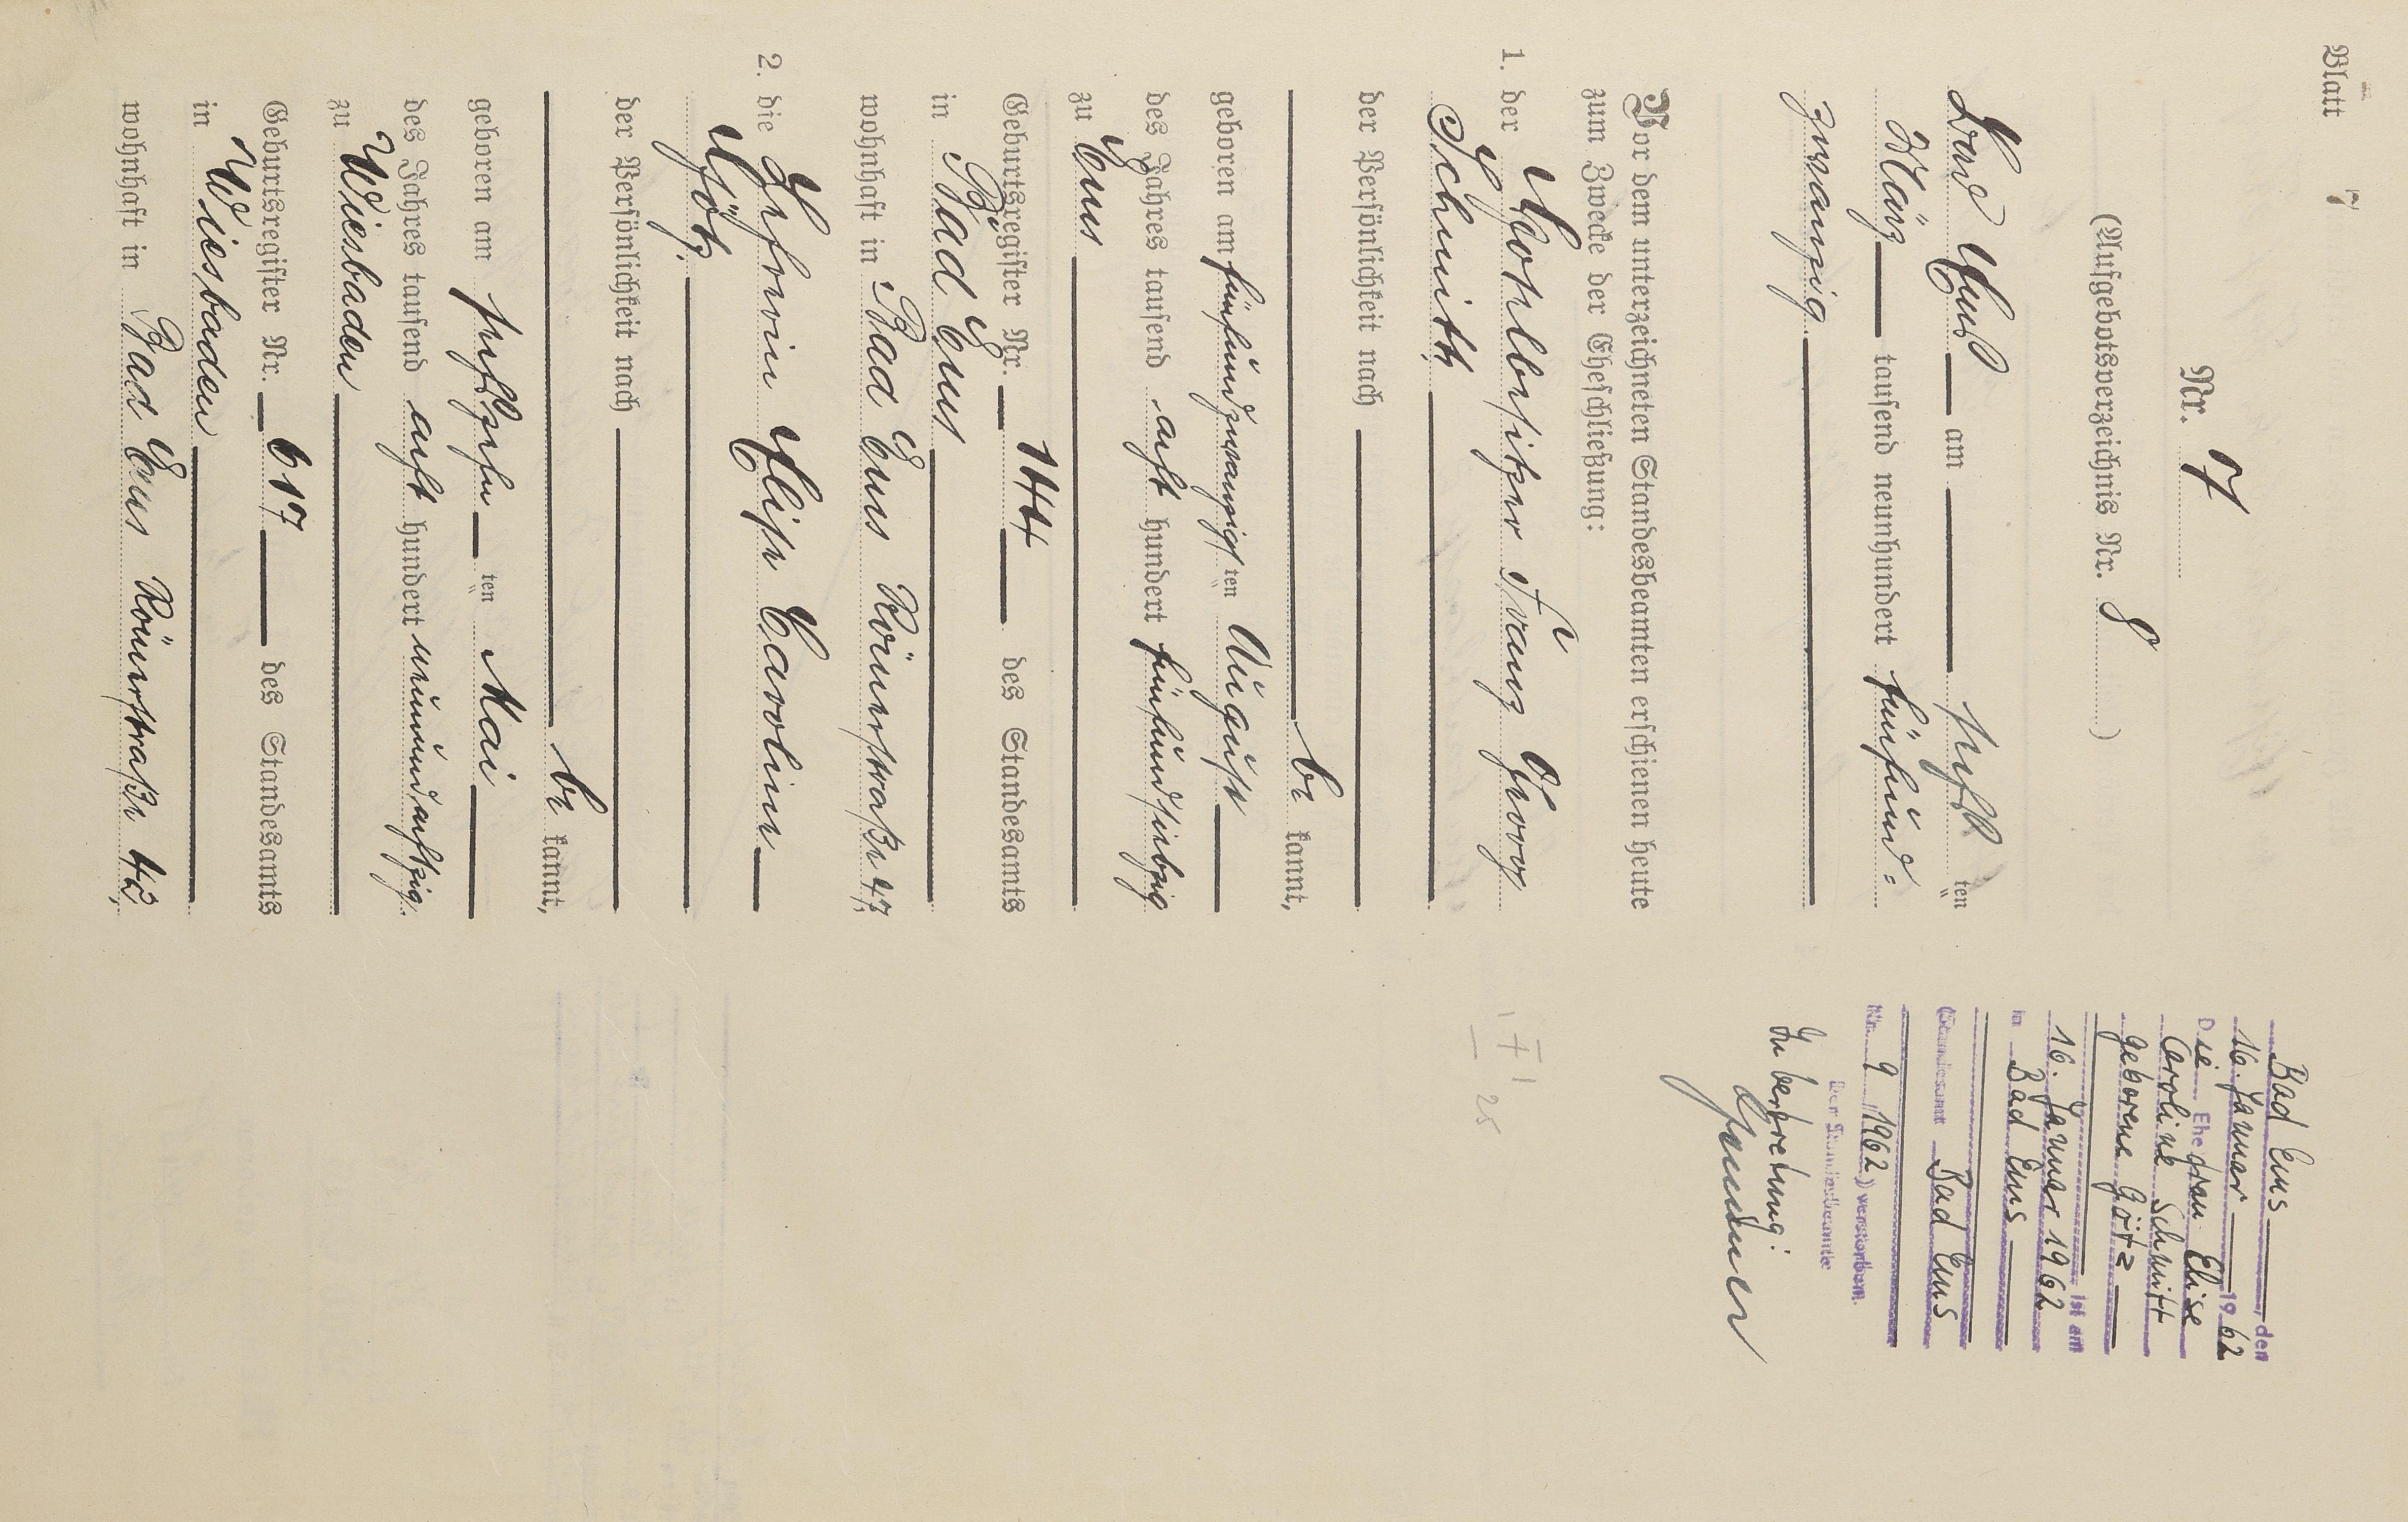 Blatt 7
Nr. 7
(Aufgebotsverzeichnis Nr. 8)
Bad Ems am sechsten
März tausend neunhundert fünfund=
zwanzig.
Vor dem unterzeichneten Standesbeamten erschienen heute
zum Zwecke der Eheschließung:
1. der Hotelbesitzer Franz Georg
Schmitt
der Persönlichkeit nach
be kannt,
geboren am fünfundzwanzigsten August
des Jahres tausend acht hundert fünfundsiebzig
zu Ems
Geburtsregister Nr. 144 des Standesamts
in Bad Ems
wohnhaft in Bad Ems Römerstraße 47;
2. die Elise Caroline
Götz
der Persönlichkeit nach
be kannt,
geboren am sechszehnten Mai
des Jahres tausend acht hundert neunundachtzig
zu Wiesbaden
Geburtsregister Nr. 617 des Standesamts
in Wiesbaden
wohnhaft in Bad Ems Römerstraße 43,
Bad Ems, den
16. Januar 1962
Die Ehefrau Elise
Caroline Schmitt
geborene Götz
ist am
16. Januar 1962
in Bad Ems
(Standesamt Bad Ems
Nr. 9 / 1962) verstorben.
Der Standesbeamte
In Vertretung:
25